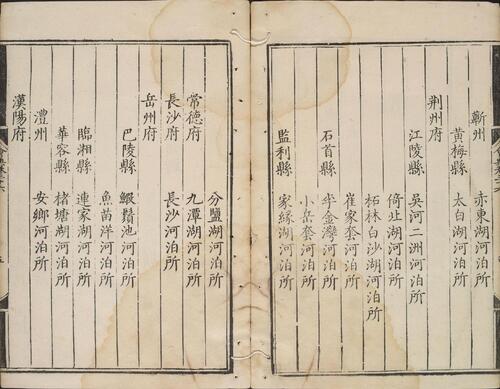 蘄州
赤東湖河泊所
黃梅縣
太白湖河泊所
荆州府
江陵縣
吳河二洲河泊所
倚北湖河泊所
柘林白沙湖河泊所
崔家套河泊所
石首縣
半金灣河泊所
小岳套河泊所
監利縣
家緣湖河泊所
分鹽湖河泊所
常德府
九潭湖河泊所
長沙府
長沙河泊所
岳州府
巴陵縣
鰕鬚池河泊所
魚苗洋河泊所
臨湘縣
連家湖河泊所
華容縣
楮塘湖河泊所
澧州
安鄉河泊所
漢陽府